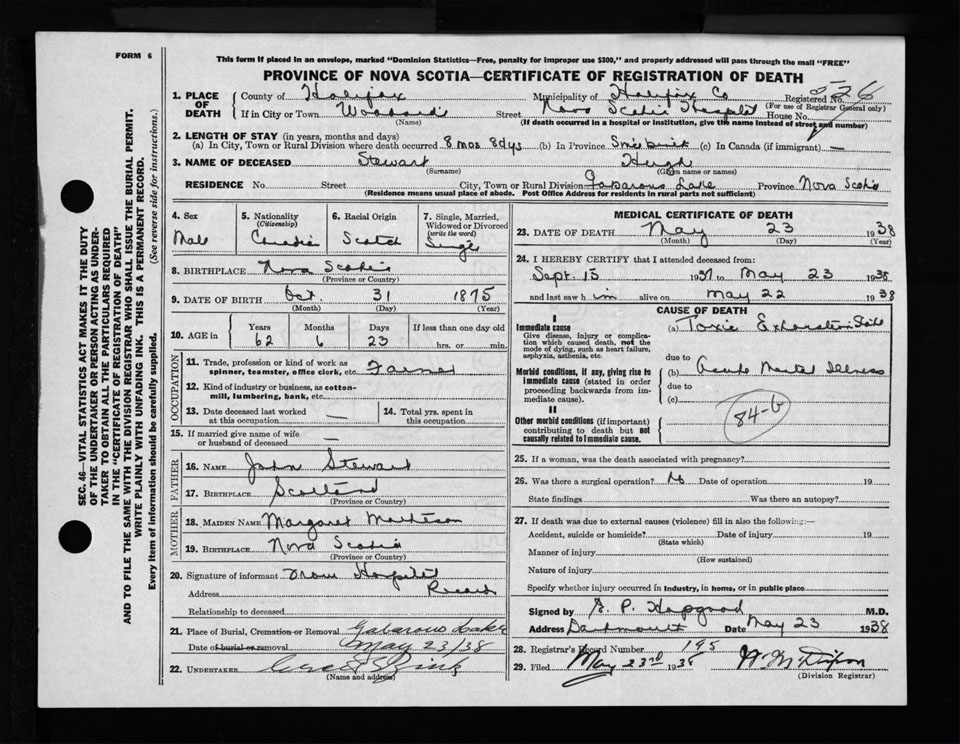 FORM 6
This form if placed in an envelope, marked "Dominion Statistics—Free, penalty for improper use $300," and properly addressed will pass through the mail "FREE"
PROVINCE OF NOVA SCOTIA—CERTIFICATE OF REGISTRATION OF DEATH
SEC. 46—VITAL STATISTICS ACT MAKES IT THE DUTY
OF THE UNDERTAKER OR PERSON ACTING AS UNDER-
TAKER TO OBTAIN ALL THE PARTICULARS REQUIRED
IN THE "CERTIFICATE OF REGISTRATION OF DEATH"
AND TO FILE THE SAME WITH THE DIVISION REGISTRAR WHO SHALL ISSUE THE BURIAL PERMIT.
WRITE PLAINLY WITH UNFADING INK. THIS IS A PERMANENT RECORD.
Every item of information should be carefully supplied. (See reverse side for instructions.)
1. PLACE OF DEATH
County of Halifax Municipality of Halifax Co Registered No. 526
(For use of Registrar General only)
If in City or Town Woodside Street Nova Scotia Hospital House No.
(Name) (If death occurred in a hospital or institution, give the name instead of street and number)
2. LENGTH OF STAY (in years, months and days)
(a) In City, Town or Rural Division where death occurred 8 mos 8 dys (b) In Province Since birth (c) In Canada (if immigrant) —
3. NAME OF DECEASED Stewart Hugh
(Surname) (Given name or names)
RESIDENCE No. Street City, Town or Rural Division Gabarous Lake Province Nova Scotia
(Residence means usual place of abode. Post Office Address for residents in rural parts not sufficient)
4. Sex
Male
5. Nationality
(Citizenship)
Canadian
6. Racial Origin
Scotch
7. Single, Married,
Widowed or Divorced
(write the word)
Single
8. BIRTHPLACE Nova Scotia
(Province or Country)
9. DATE OF BIRTH Oct. 31 1875
(Month) (Day) (Year)
10. AGE in
Years Months Days If less than one day old
62 6 23 hrs. or min.
OCCUPATION
11. Trade, profession or kind of work as
spinner, teamster, office clerk, etc. Farmer
12. Kind of industry or business, as cotton-
mill, lumbering, bank, etc.
13. Date deceased last worked
at this occupation —
14. Total yrs. spent in
this occupation
15. If married give name of wife
or husband of deceased —
FATHER
16. NAME John Stewart
17. BIRTHPLACE Scotland
(Province or Country)
MOTHER
18. MAIDEN NAME Margaret Matheson
19. BIRTHPLACE Nova Scotia
(Province or Country)
20. Signature of informant From Hospital
Address Records
Relationship to deceased
21. Place of Burial, Cremation or Removal Gabarous Lake
Date of burial or removal May 23/38
22. UNDERTAKER
(Name and address)
MEDICAL CERTIFICATE OF DEATH
23. DATE OF DEATH May 23 1938
(Month) (Day) (Year)
24. I HEREBY CERTIFY that I attended deceased from:
Sept. 15 1937 to May 23 1938
and last saw h im alive on May 22 1938
CAUSE OF DEATH
I
Immediate cause
Give disease, injury or complica-
tion which caused death, not the
mode of dying, such as heart failure,
asphyxia, asthenia, etc.
(a) Toxic Exhaustion State
due to
Morbid conditions, if any, giving rise to
immediate cause (stated in order
proceeding backwards from im-
mediate cause).
(b) Acute Mental Illness
due to
(c)
84-b
II
Other morbid conditions (if important)
contributing to death but not
causally related to immediate cause.
25. If a woman, was the death associated with pregnancy?
26. Was there a surgical operation? No Date of operation 19
State findings Was there an autopsy?
27. If death was due to external causes (violence) fill in also the following:—
Accident, suicide or homicide? Date of injury 19
(State which)
Manner of injury
(How sustained)
Nature of injury
Specify whether injury occurred in industry, in home, or in public place
Signed by G. P. Hapgood M.D.
Address Dartmouth Date May 23 1938
28. Registrar's Record Number 195
29. Filed May 23rd 1938
(Division Registrar)